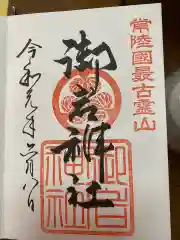 常陸國最古霊山
御岩神社
令和元年六月八日
御岩
神社